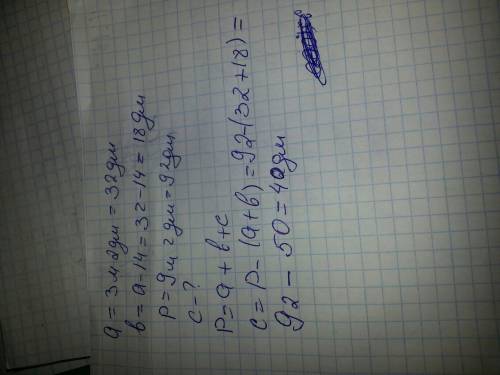 a = 3м 2дм = 32дм
в = а - 14 = 32 - 14 = 18дм
Р = 9м 2дм = 92дм
с - ?
Р = а + в + с
с = Р - (а + в) = 92 - (32 + 18) =
92 - 50 = 42дм